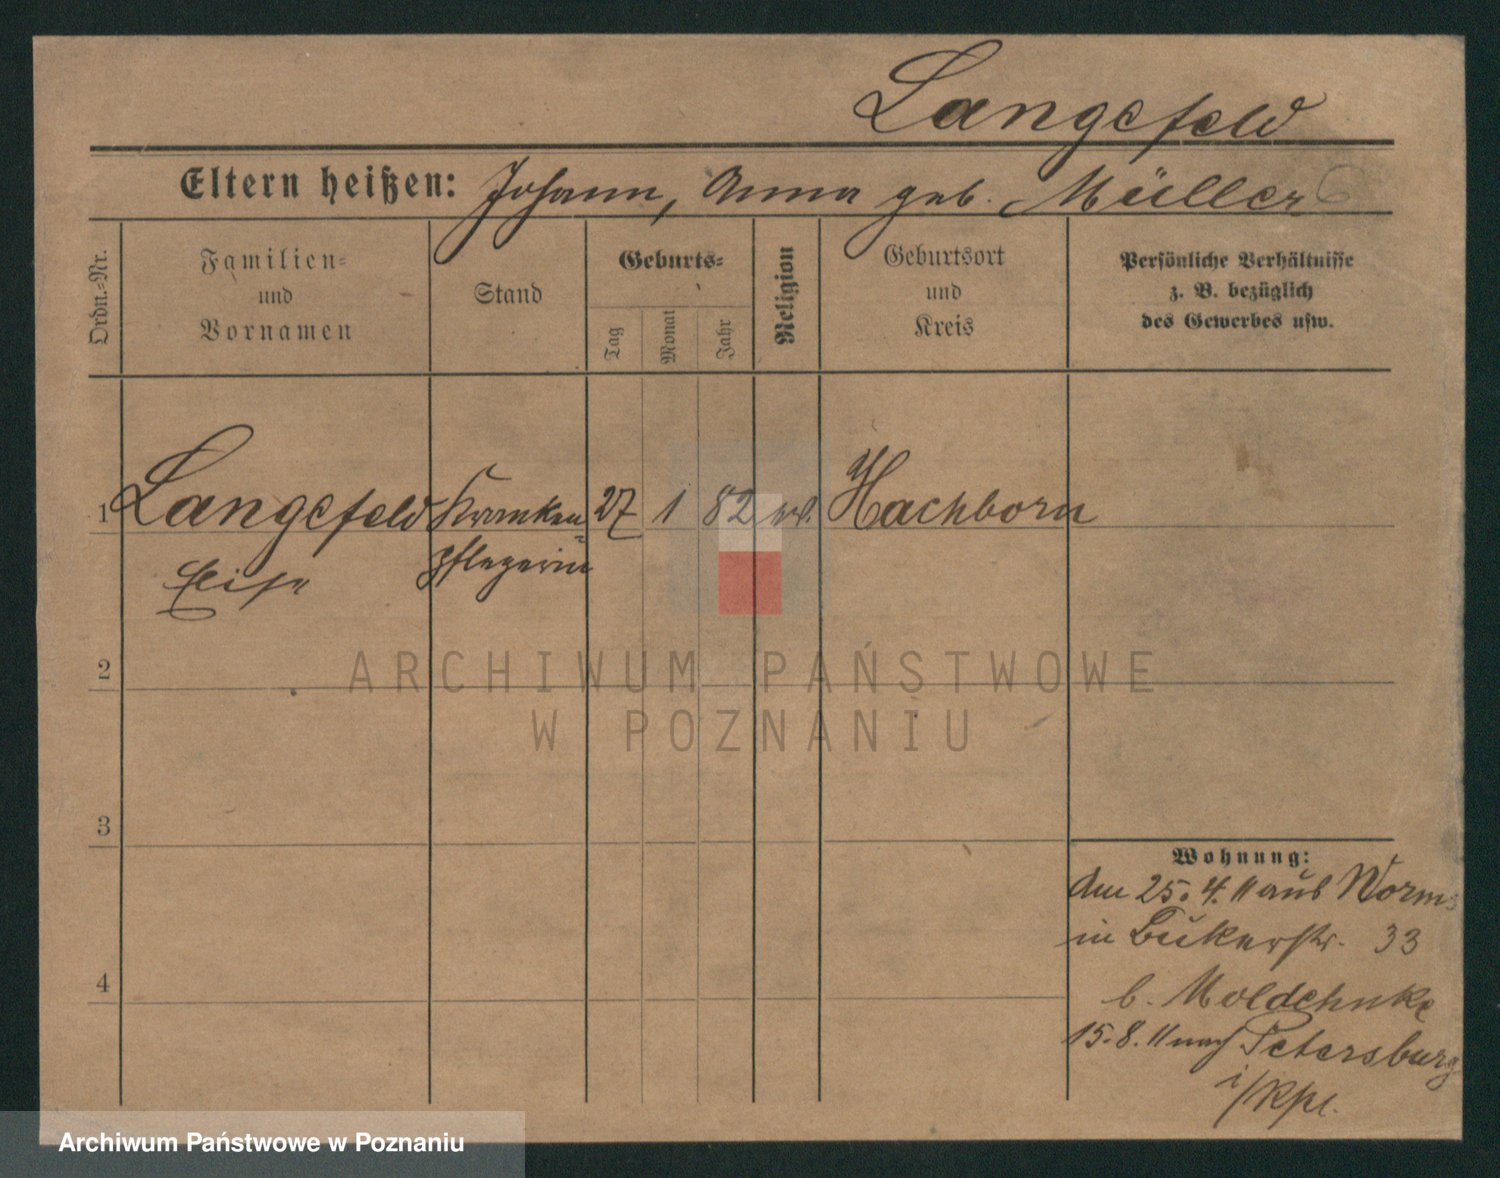 Langefeld
Eltern heißen: Johann, Anna geb. Müller
Ordn.-Nr.
Familien- und Vornamen
Stand
Geburts-
Tag
Monat
Jahr
Religion
Geburtsort und Kreis
Persönliche Verhältnisse z. B. bezüglich des Gewerbes usw.
1 Langefeld Kranken= 27 1 82 ev. Hachborn
Elise pflegerin
2
3
4
Wohnung:
den 25. 4. 11 aus Worms
in Bukerstr. 33
b. Moldehnke
15. 8. 11 nach Petersburg
i/
ARCHIWUM PAŃSTWOWE
W POZNANIU
Archiwum Państwowe w Poznaniu